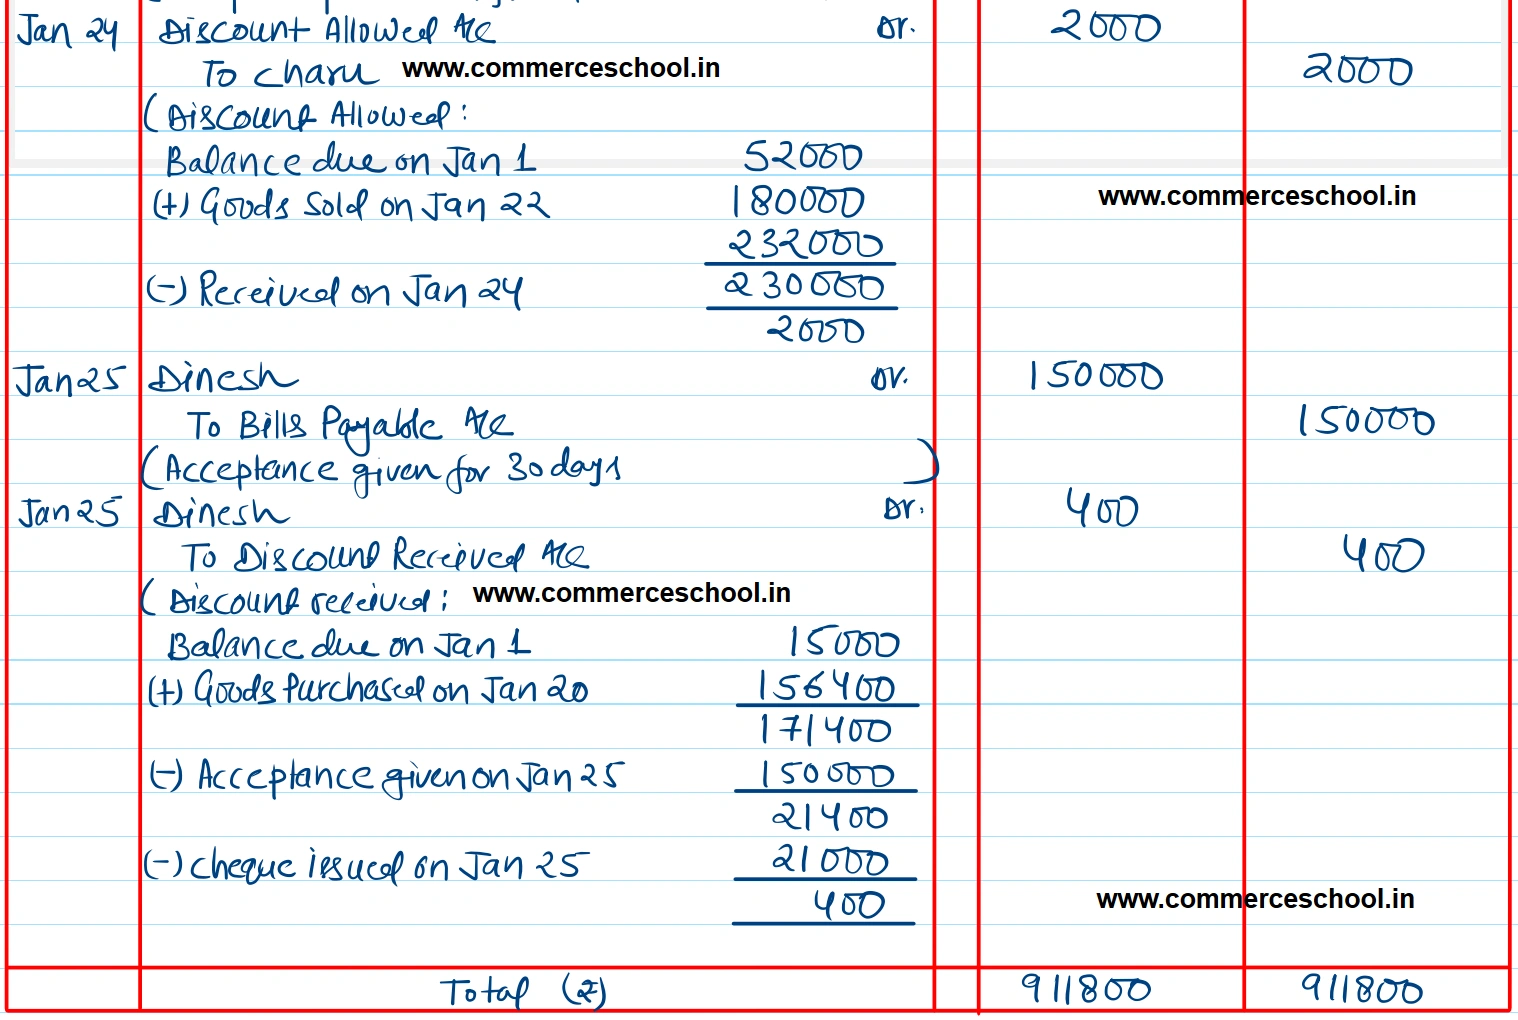 Jan 24 Discount Allowed A/c Dr. 2000
To Charu www.commerceschool.in 2000
(Discount Allowed:
Balance due on Jan 1 52000
(+) Goods Sold on Jan 22 180000 www.commerceschool.in
232000
(-) Received on Jan 24 230000
2000
Jan 25 Dinesh Dr. 150000
To Bills Payable A/c 150000
(Acceptance given for 30 days)
Jan 25 Dinesh Dr. 400
To Discount Received A/c 400
(Discount received: www.commerceschool.in
Balance due on Jan 1 15000
(+) Goods Purchased on Jan 20 156400
171400
(-) Acceptance given on Jan 25 150000
21400
(-) Cheque issued on Jan 25 21000
400 www.commerceschool.in
Total (₹) 911800 911800